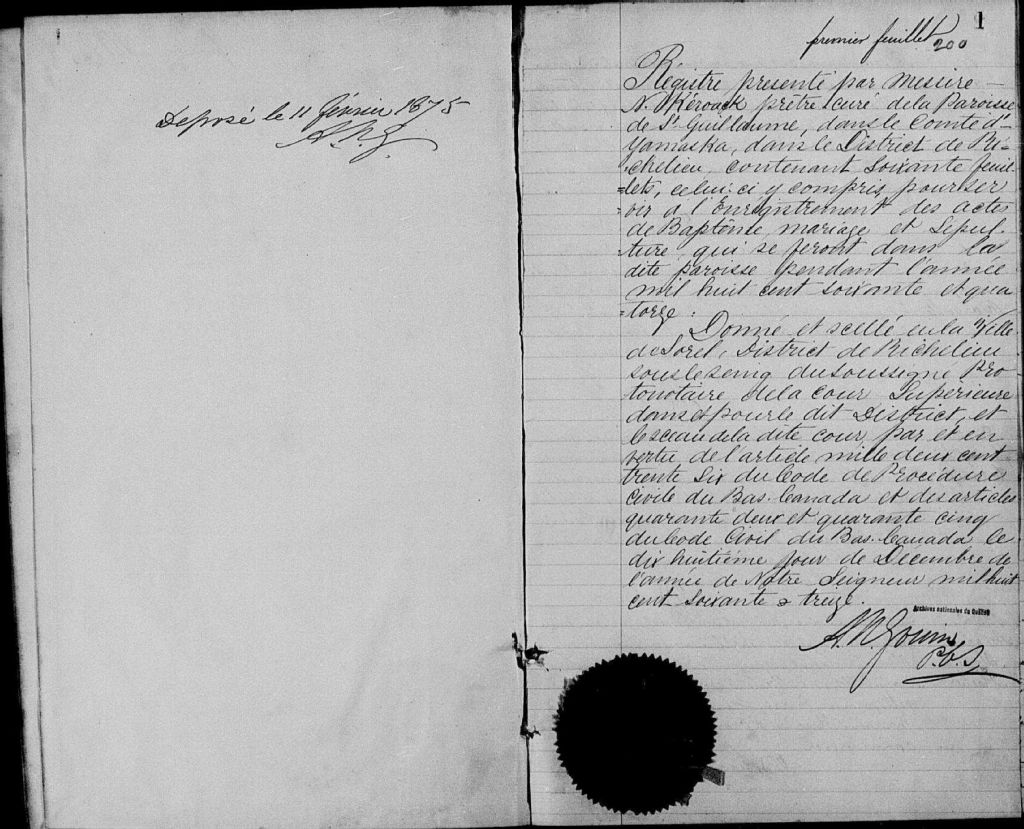 Déposé le 11 février 1875
A. N. G.
1
premier feuillet
200
Régistre présenté par Messire
N. Kéroack prêtre curé de la Paroisse
de St. Guillaume, dans le Comté d'
Yamaska, dans le District de Ri-
chelieu contenant Soixante feuil-
=lets, celui-ci y compris, pour ser
=vir à l'Enregistrement des actes
de Baptême, mariage et Sépul-
ture, qui se feront dans la
dite paroisse pendant l'année
mil huit cent soixante et qua
=torze.
Donné et scellé en la Ville
de Sorel, District de Richelieu
sous le seing du soussigné Pro
tonotaire de la cour Supérieure
dans et pour le dit District, et
le sceau de la dite cour, par et en
vertu de l'article mille deux cent
trente six du Code de Procédure
civile du Bas-Canada et des articles
quarante deux et quarante cinq
du Code Civil du Bas-Canada le
dix huitième jour de Décembre de
l'année de Notre Seigneur mil huit
cent Soixante & treize.
Archives nationales du Québec
A. N. Gouin
P. C. S.